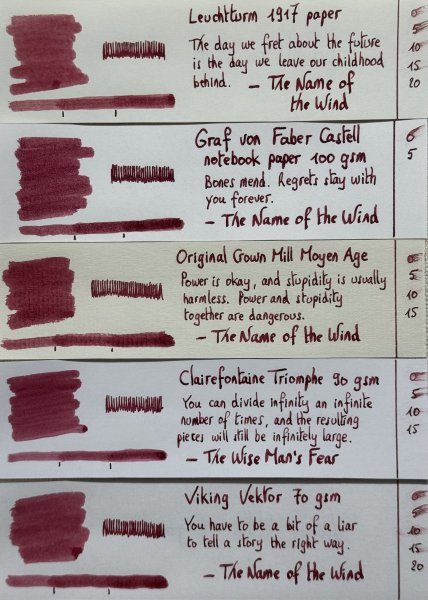 Leuchtturm 1917 paper
The day we fret about the future
is the day we leave our childhood
behind. – The Name of
the Wind
0
5
10
15
20
Graf von Faber Castell
notebook paper 100 gsm
Bones mend. Regrets stay with
you forever.
– The Name of the Wind
0
5
Original Crown Mill Moyen Age
Power is okay, and stupidity is usually
harmless. Power and stupidity
together are dangerous.
– The Name of the Wind
0
5
10
15
Clairefontaine Triomphe 90 gsm
You can divide infinity an infinite
number of times, and the resulting
pieces will still be infinitely large.
– The Wise Man's Fear
0
5
10
15
Viking Vektor 70 gsm
You have to be a bit of a liar
to tell a story the right way.
– The Name of the Wind
0
5
10
15
20